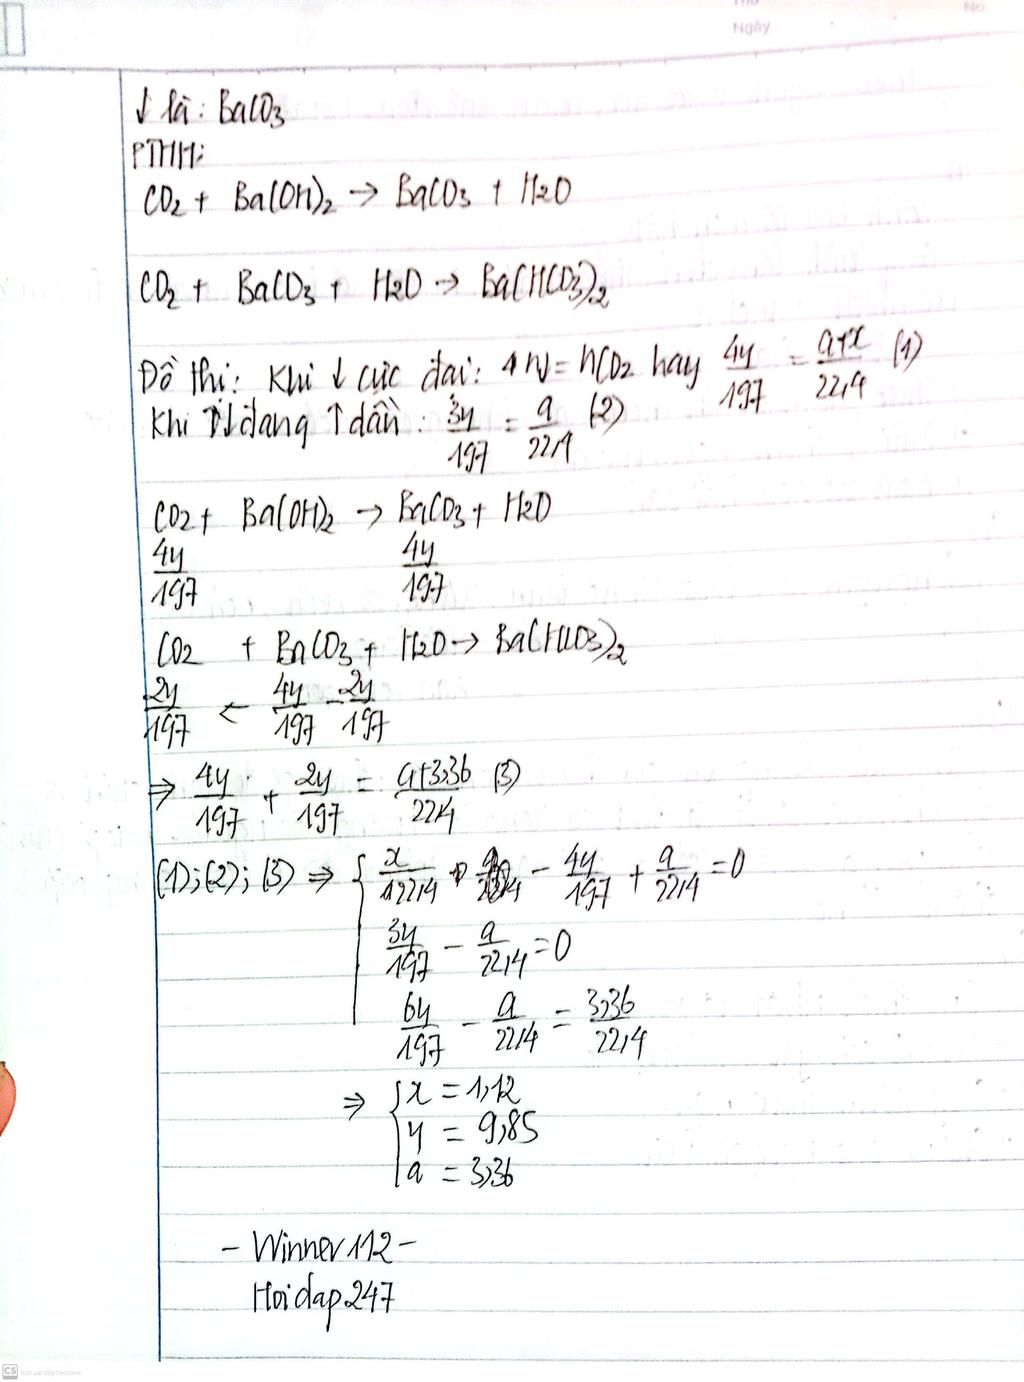 Ngày
No
↓ là: BaCO3
PTHH:
CO2 + Ba(OH)2 → BaCO3 + H2O
CO2 + BaCO3 + H2O → Ba(HCO3)2
Đồ thị: Khi ↓ cực đại: n↓ = nCO2 hay 4y/197 = a+x/22,4 (1)
Khi ↓ đang ↑ dần: 3y/197 = a/22,4 (2)
CO2 + Ba(OH)2 → BaCO3 + H2O
4y/197 4y/197
CO2 + BaCO3 + H2O → Ba(HCO3)2
2y/197 ← 4y/197 - 2y/197
⇒ 4y/197 + 2y/197 = a+3,36/22,4 (3)
(1); (2); (3) ⇒ { x/22,4 - 4y/197 + a/22,4 = 0
3y/197 - a/22,4 = 0
6y/197 - a/22,4 = 3,36/22,4
⇒ { x = 1,12
y = 9,85
a = 3,36
- Winner112 -
Hoidap247
CS